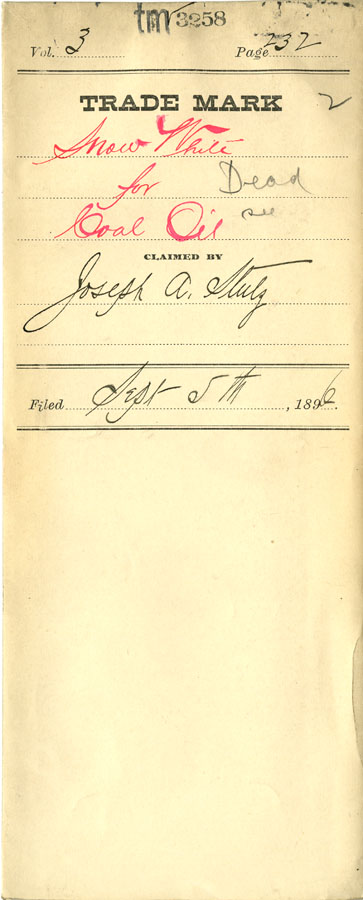 tm 3258
Vol. 3 Page 232
TRADE MARK 2
Snow White
for Dead
Coal Oil see
CLAIMED BY
Joseph A. Stulz
Filed Sept 5th, 1896.